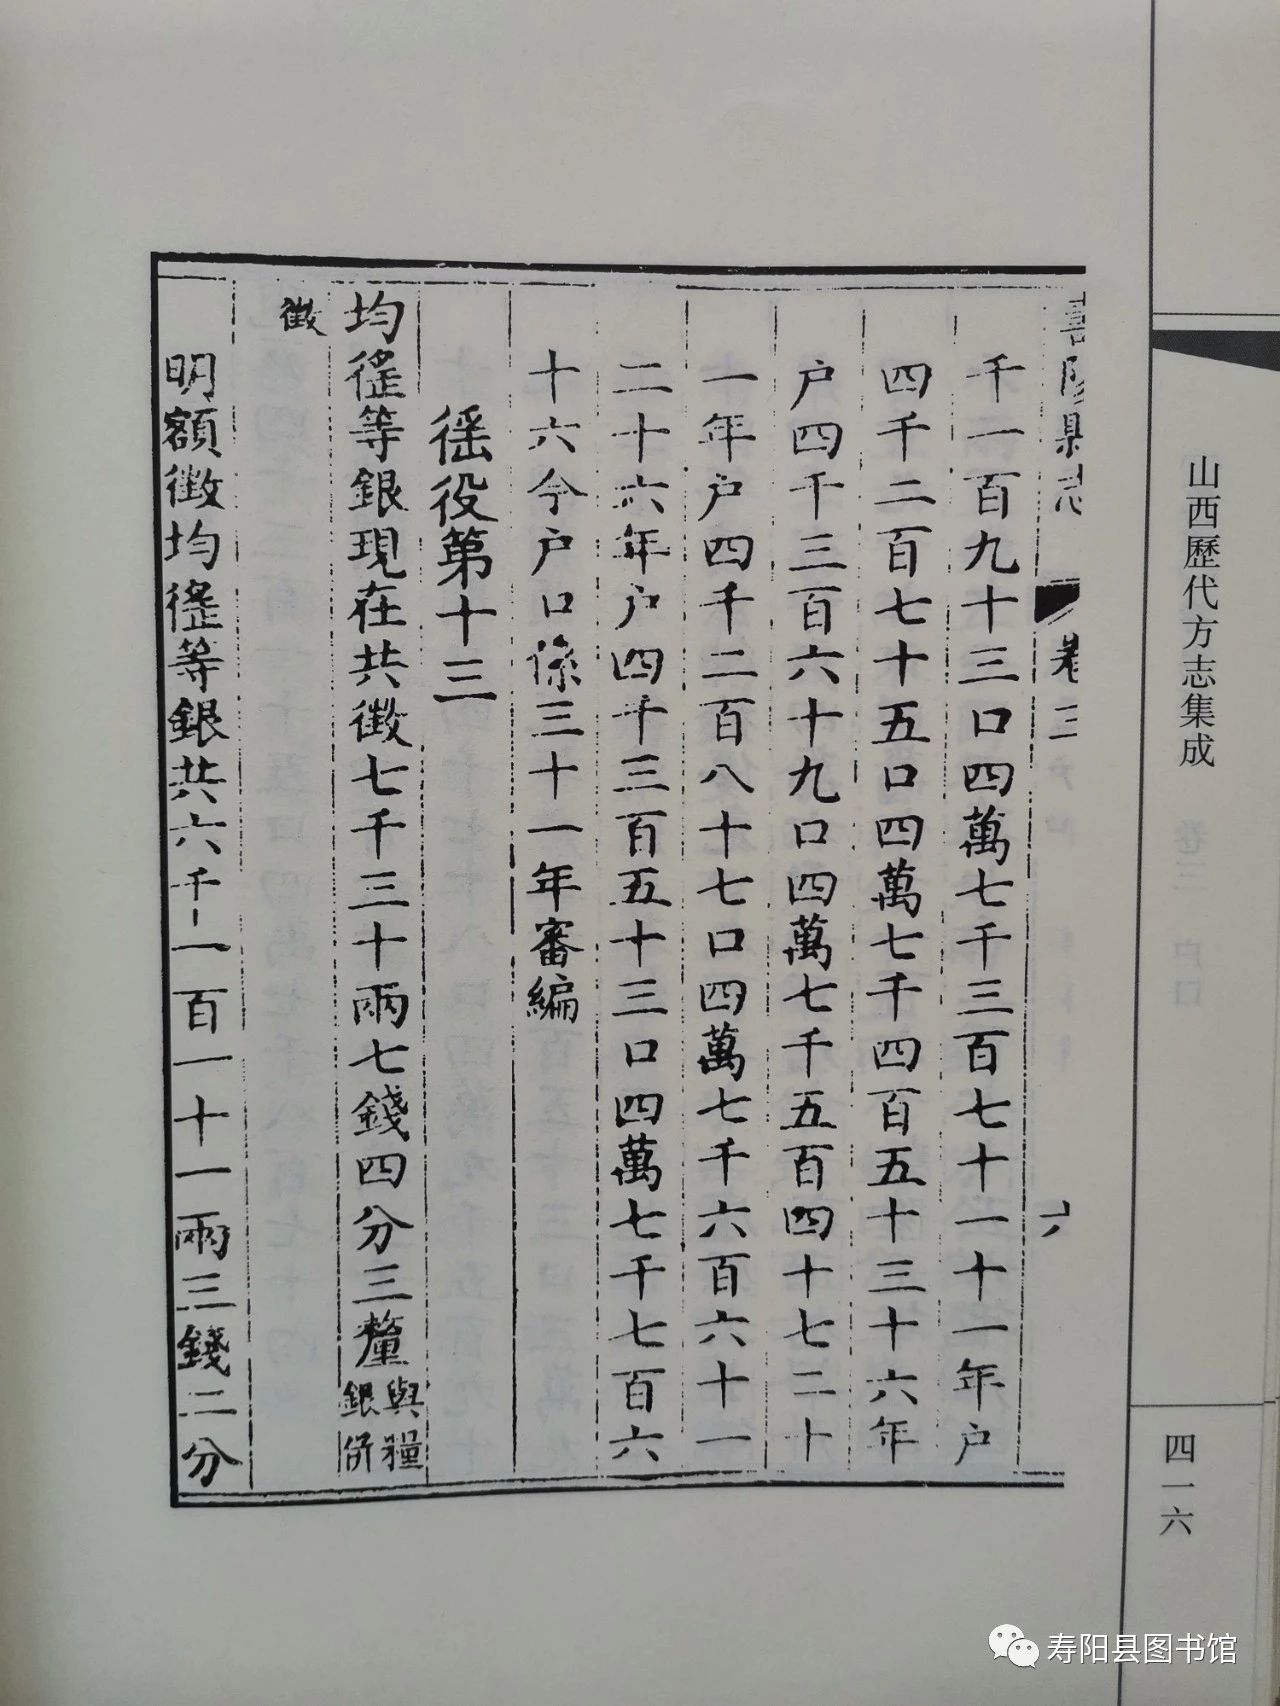 山西歷代方志集成
卷三 户口
四一六
壽陽縣志 卷三 六
千一百九十三口四萬七千三百七十一十一年户
四千二百七十五口四萬七千四百五十三十六年
户四千三百六十九口四萬七千五百四十七二十
一年户四千二百八十七口四萬七千六百六十一
二十六年户四千三百五十三口四萬七千七百六
十六今户口係三十一年審編
徭役第十三
均徭等銀現在共徵七千三十兩七錢四分三釐與糧
銀併
徵
明額徵均徭等銀共六千一百一十一兩三錢二分
寿阳县图书馆